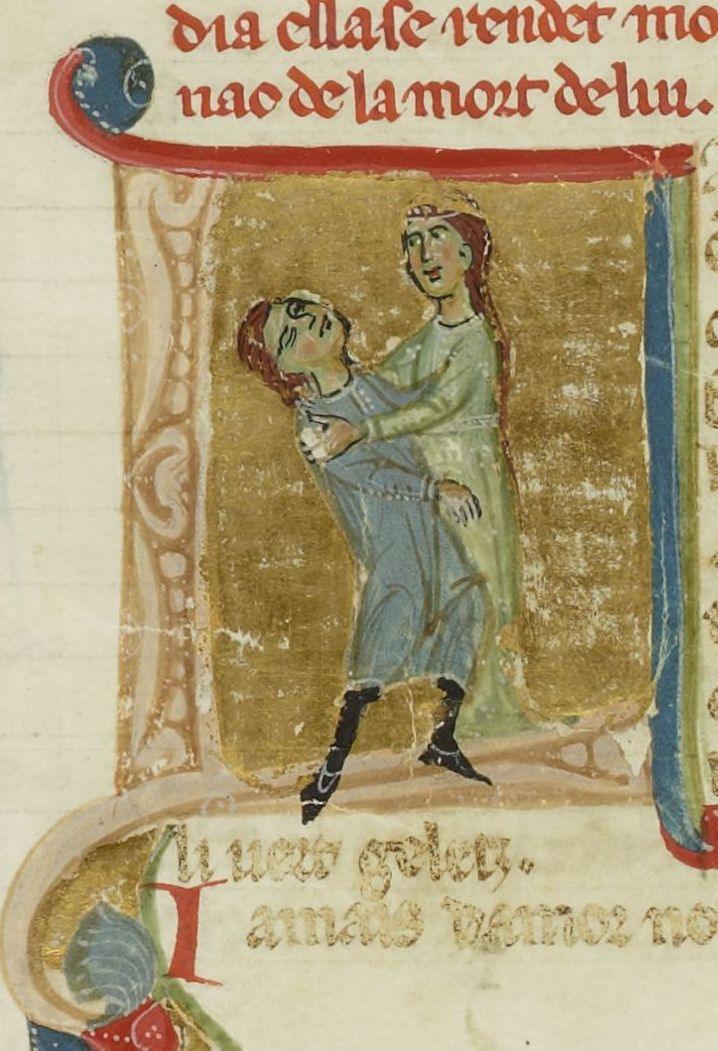 dia ellase rendet mo
nao de la mort de lui.
li uers gelez.
I amais damor no